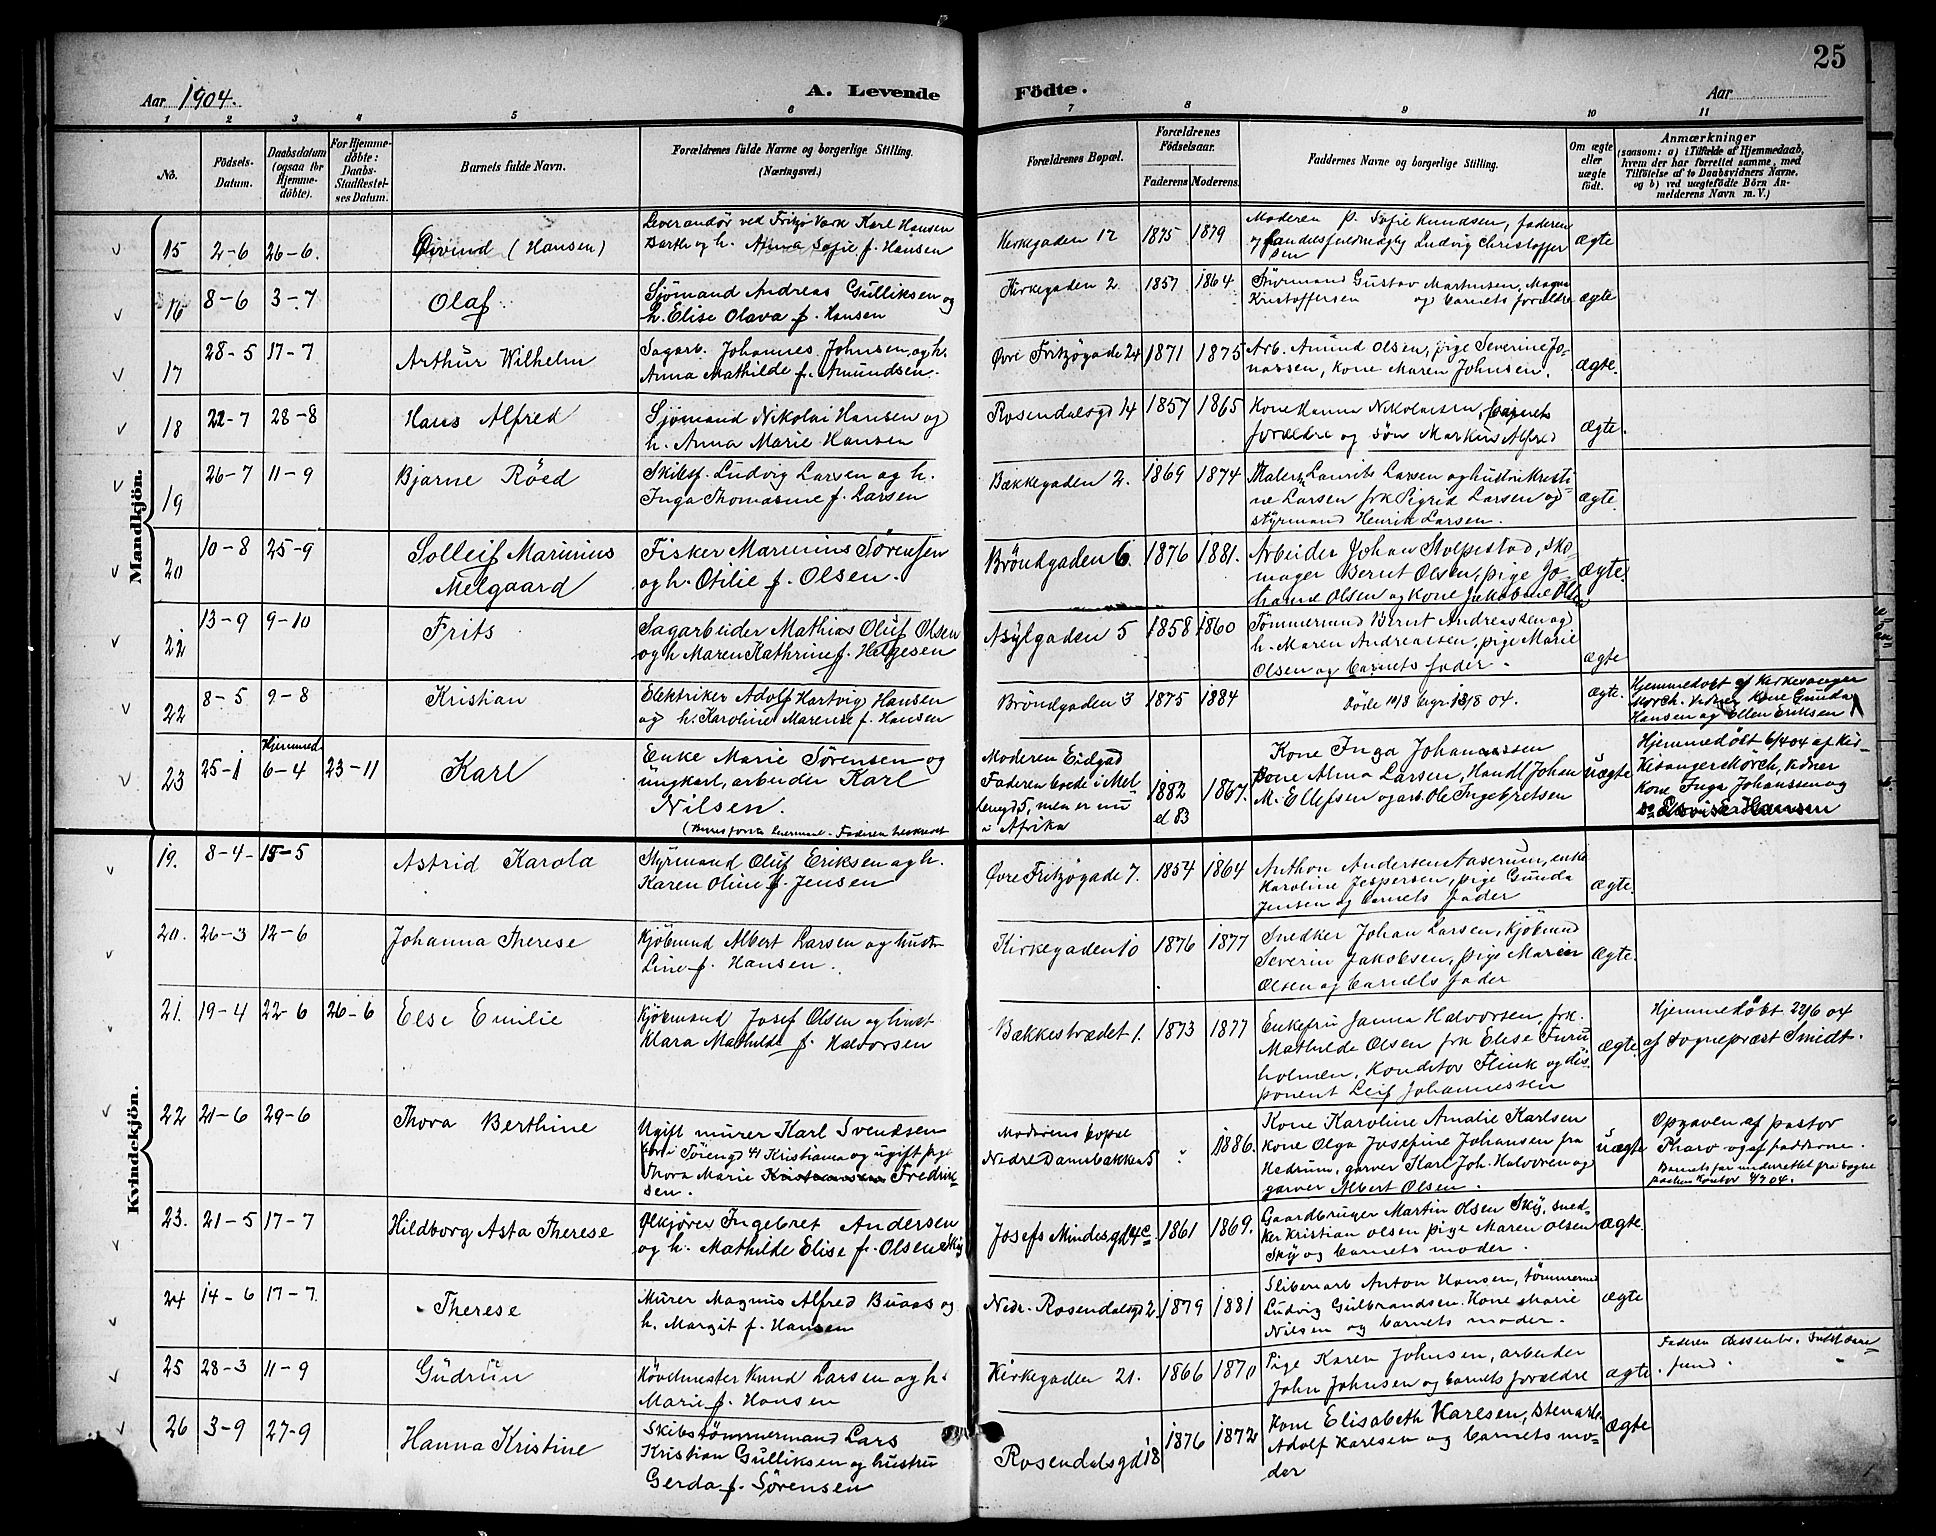 25
Aar 1904.
A. Levende
Födte.
Aar
1 2 3 4 5 6 7 8 9 10 11
No.
Födsels-
Datum.
Daabsdatum
(ogsaa for
Hjemme-
döbte).
For Hjemme-
döbte:
Daabs-
Stadfæstel-
ses Datum.
Barnets fulde Navn.
Forældrenes fulde Navne og borgerlige Stilling.
(Næringsvei.)
Forældrenes Bopæl.
Forældrenes
Födselsaar.
Faderens Moderens.
Faddernes Navne og borgerlige Stilling.
Om ægte
eller
uægte
födt.
Anmærkninger
(saasom: a) i Tilfælde af Hjemmedaab,
hvem der har forrettet samme, med
Tilföielse af to Daabsvidners Navne,
og b) ved uægtefödte Börn An-
melderens Navn m. V.)
Mandkjön.
15 2-6 26-6. Øivind (Hansen)
Leverandør ved Fritzø Værk Karl Hansen
Barth og h. Anna Sofie f. Hansen
Kirkegaden 12 1875 1879
Moderen p. Sofie Knudsen, faderen
og handelsfuldmægtig Ludvig Christoffer
sen
ægte
16 8-6 3-7 Olaf
Sjømand Andreas Gulliksen og
h. Elise Olava f. Hansen
Kirkegaden 2. 1857 1864
Styrmand Gustav Mathisen, Magna
Kristoffersen og barnets forældre
ægte
17 28-5 17-7 Arthur Wilhelm
Sagarb. Johannes Johnsen, og h.
Anna Mathilde f. Amundsen.
Øvre Fritzøgade 24 1871 1875
Arb. Amund Olsen, pige Severine Jo-
nassen, Kone Maren Johnsen.
ægte.
18 22-7 28-8 Hans Alfred
Sjømand Nikolai Hansen og
h. Anna Marie Hansen
Rosendalsgd 14 1857 1865
Kone Hanna Nikolaisen, barnets
forældre og søn Markus Alfred
ægte.
19 26-7 11-9 Bjarne Röed
Skibsf. Ludvig Larsen og h.
Inga Thomasine f. Larsen
Bækkegaden 2. 1869 1874
Maler Lauritz Larsen og hustru Kristi-
ne Larsen frk Sigrid Larsen og
styrmand Henrik Larsen.
ægte.
20 10-8 25-9 Solleif Marinius
Melgaard
Fisker Marinius Sørensen
og h. Otilie f. Olsen.
Bröndgaden 6. 1876 1881.
Arbeider Johan Stolpestad, sko-
mager Bernt Olsen, pige Jo-
hanne Olsen og Kone Jakobine Olsen
ægte.
22 13-9 9-10 Frits
Sagarbeider Mathias Oluf Olsen
og h Maren Kathrine f. Helgesen
Asylgaden 5 1858 1860
Tømmermand Bernt Andreassen og
h. Maren Andreassen, pige Marie
Olsen og barnets fader.
ægte
22 8-5 9-8 Kristian
Elektriker Adolf Hartvig Hansen
og h. Karoline Marense f. Hansen
Bröndgaden 3 1875 1884
Døde 10/8 begr. 13/8 04.
ægte.
Hjemmedøbt af Kirkesanger
Mørch. Vidner Kone Gunda
Hansen og Ellen Eriksen
23 25-1 Hjemmed 6-4 23-11 Karl
Enke Marie Sørensen og
ungkarl, arbeider Karl
Nilsen.
Moderen Eidgad
Faderen boede i Mel
longd 5, men er nu
i Afrika
1882 el 83 1867.
Kone Inga Johannessen
Kone Alma Larsen, Handl Johan
M. Ellefsen og arb. Ole Ingebretsen
uægte
Hjemmedøbt 6/4 04 af Kir-
kesanger Mørch, Vidner
Kone Inga Johannsen og
Kvindekjön.
19. 8-4- 15-5 Astrid Karola
Styrmand Oluf Eriksen og h.
Karen Oline f. Jensen
Øvre Fritzøgade 7. 1854 1864
Anthon Andersen Aaserum, enke
Karoline Jespersen, pige Gunda
Jensen og barnets fader
ægte.
20. 26-3 12-6 Johanna Therese
Kjöbmand Albert Larsen og hustr
Line f. Hansen.
Kirkegaden 10 1876 1877
Snedker Johan Larsen, Kjöbmd
Severin Jakobsen, pige Maren
Olsen og barnets fader
ægte.
21. 19-4 22-6 26-6 Else Emilie
Kjöbmand Josef Olsen og hust
Klara Mathilde f. Halvorsen
Bækkestrædet 1. 1873 1877
Enkefru Janna Halvorsen, frk.
Mathilde Olsen frk Elise Furu
holmen, Konditor Flink og dis-
ponent Leif Johannessen
ægte.
Hjemmedøbt 22/6 04
af Sognepræst Smidt.
22 21-6 29-6 Thora Berthine
Ugift murer Karl Svendsen
bor i Sörengd 41 Kristiania og ugift pige
Thora Marie Kristiansen Fredrik-
sen.
Moderens bopæl
Nedre Damsbakken 5 " 1886.
Kone Karoline Amalie Karlsen
Kone Olga Josefine Johansen fra
Hedrum, garver Karl Joh. Halvorsen og
garver Albert Olsen.
uægte
Opgaven af pastor
Tharo og af fadderne.
Barnets far underrettet fra Sogne
præstens kontor 4/7 04.
23. 21-5 17-7 Hildborg Asta Therese
Ølkjører Ingebret Andersen
og h. Mathilde Elise f. Olsen Sky
Josefs Mindesgd 4c. 1861 1869.
Gaardbruger Martin Olsen Sky, sned-
ker Kristian Olsen pige Maren Olsen
Sky og barnets moder.
ægte.
24 14-6 17-7 Therese
Murer Magnus Alfred Buaas og
h. Margit f. Hansen
Nedr. Rosendalsgd 2. 1879 1881
Sliberiarb Anton Hansen, tømmermd
Ludvig Gulbrandsen. Kone Marie
Nilsen og barnets moder.
ægte
25 28-3 11-9 Gudrun
Hövelmester Knud Larsen og h.
Marie f. Hansen
Kirkegaden 21. 1866 1870
Pige Karen Johnsen, arbeider
John Johnsen og barnets forældre
ægte.
Faderen dissenter.
26 3-9 27-9 Hanna Kristine
Skibstømmermand Lars
Kristian Gulliksen og hustru
Gerda f. Sørensen
Rosendalsgd 18 1876 1872
Kone Elisabeth Karlsen, Stenarb.
Adolf Karlsen og barnets mo-
der
ægte